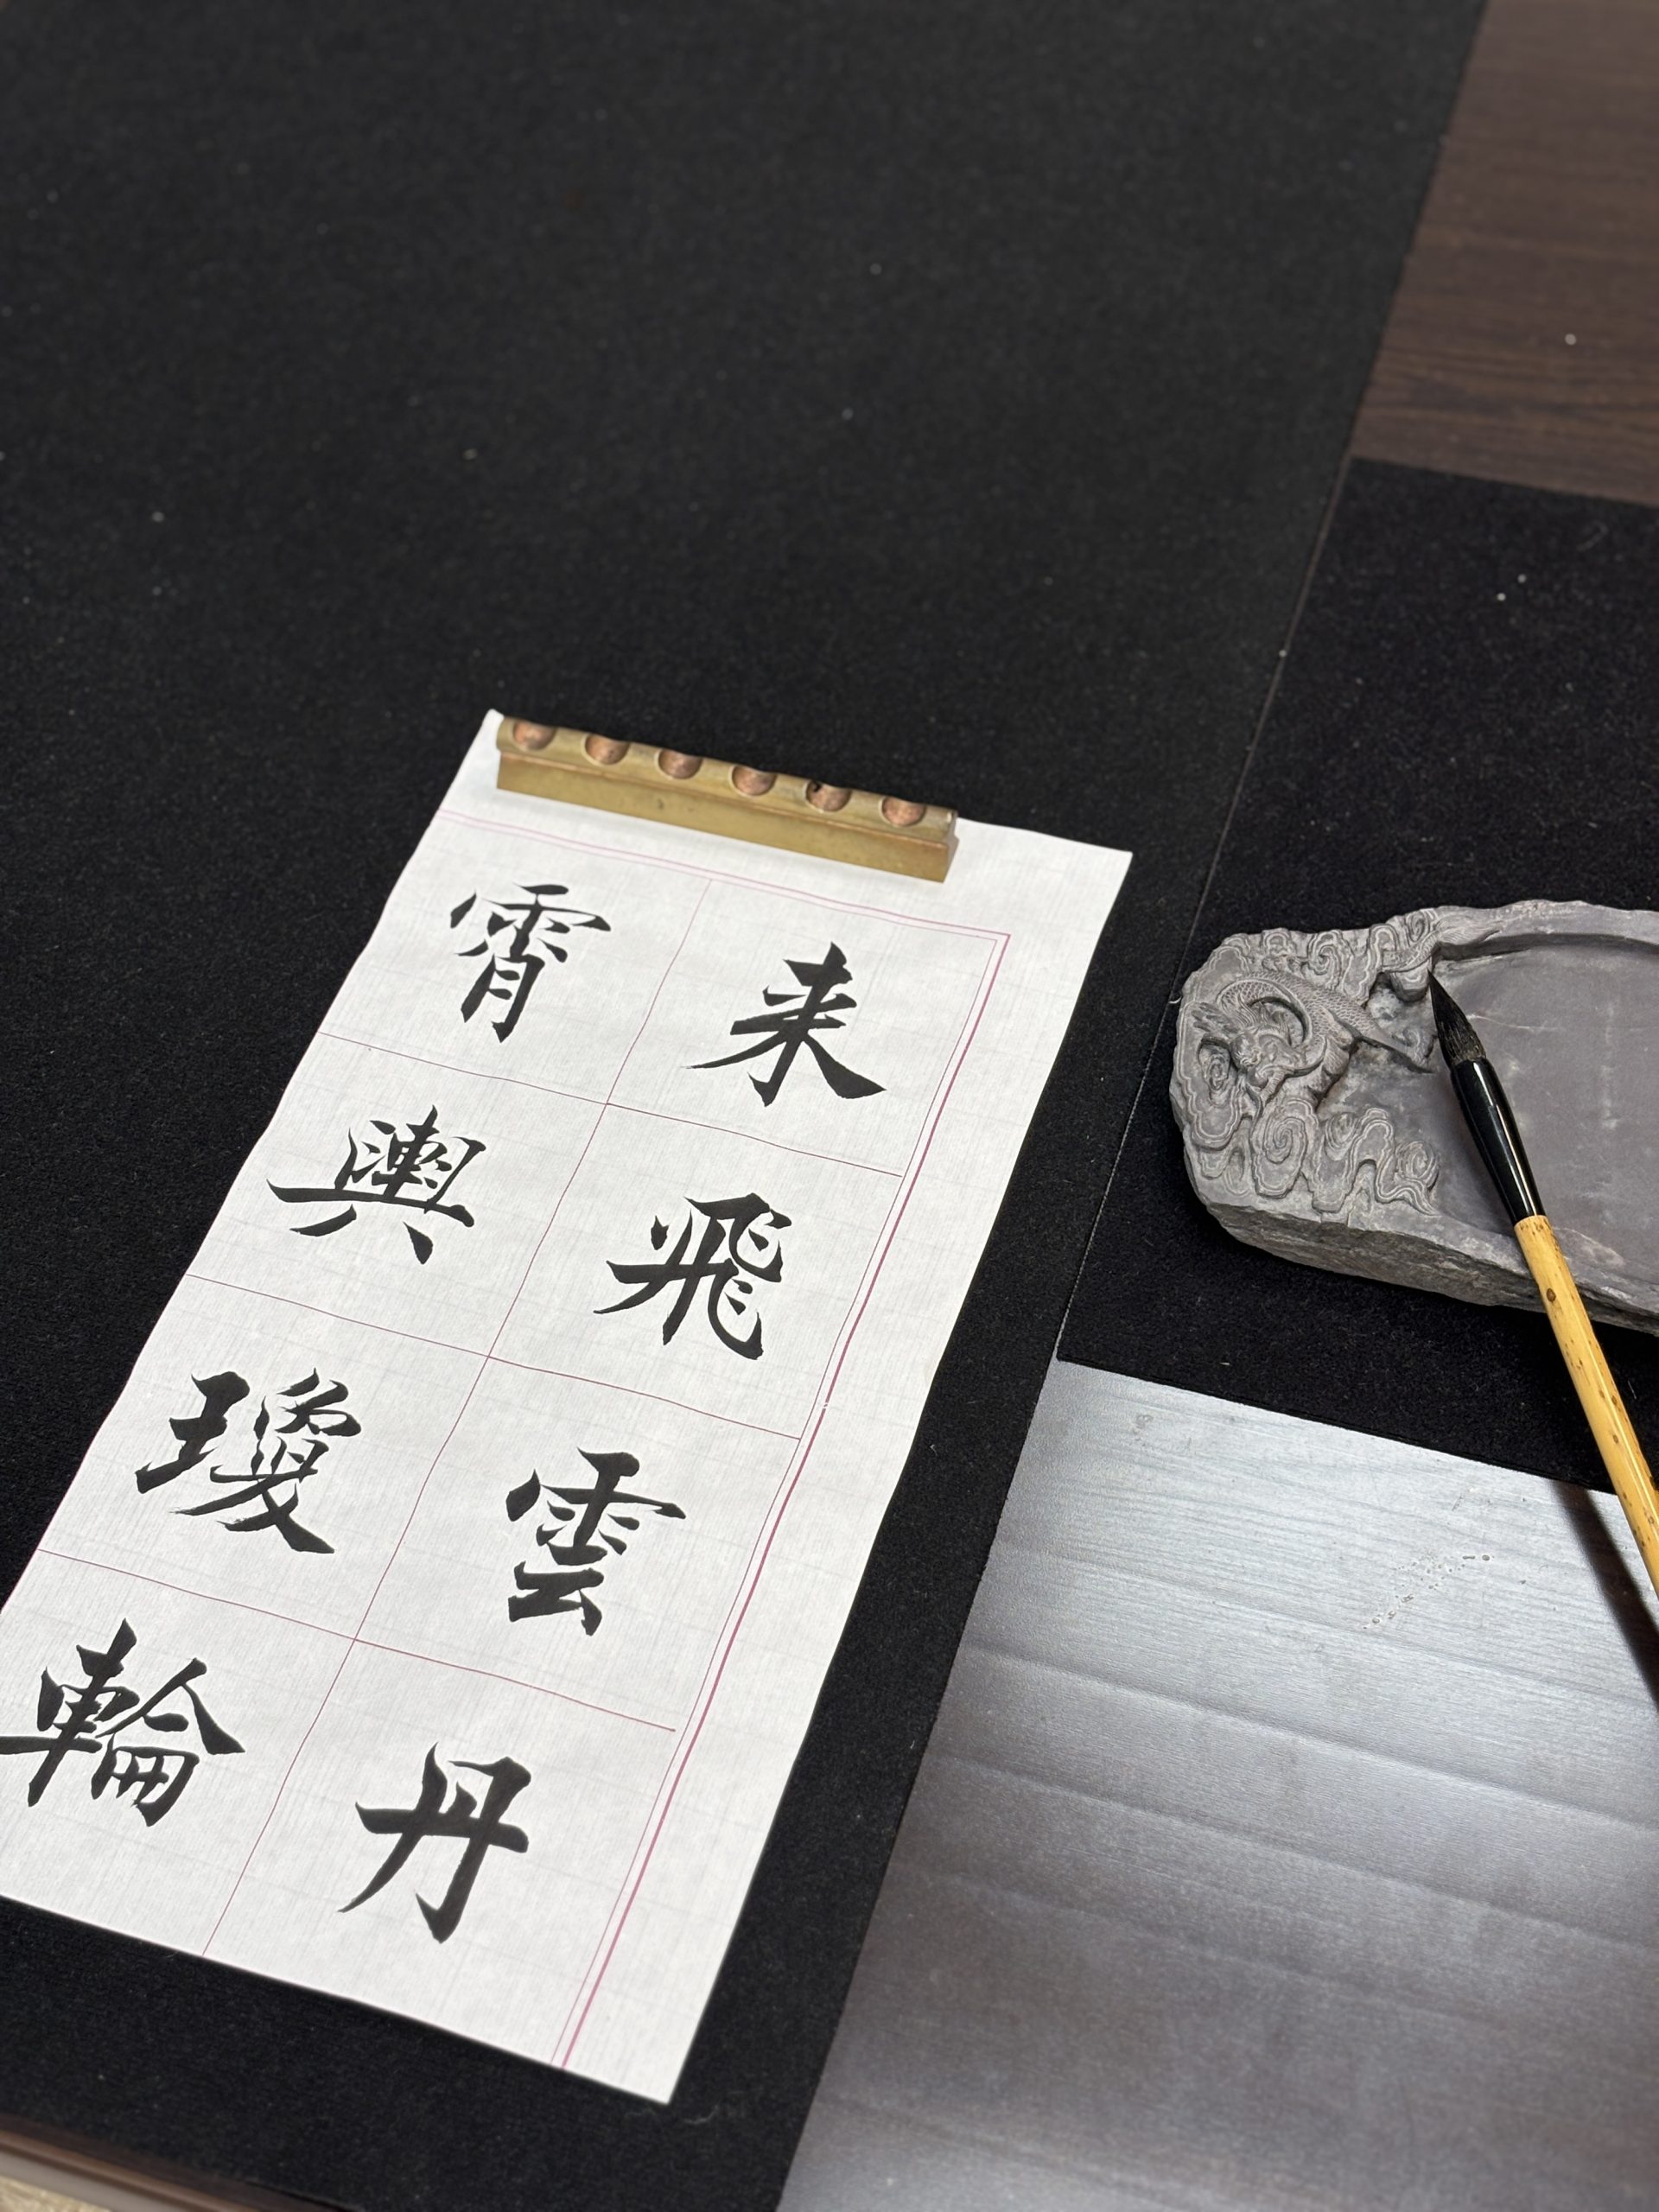 来飛雲丹
霄輿瓊輪